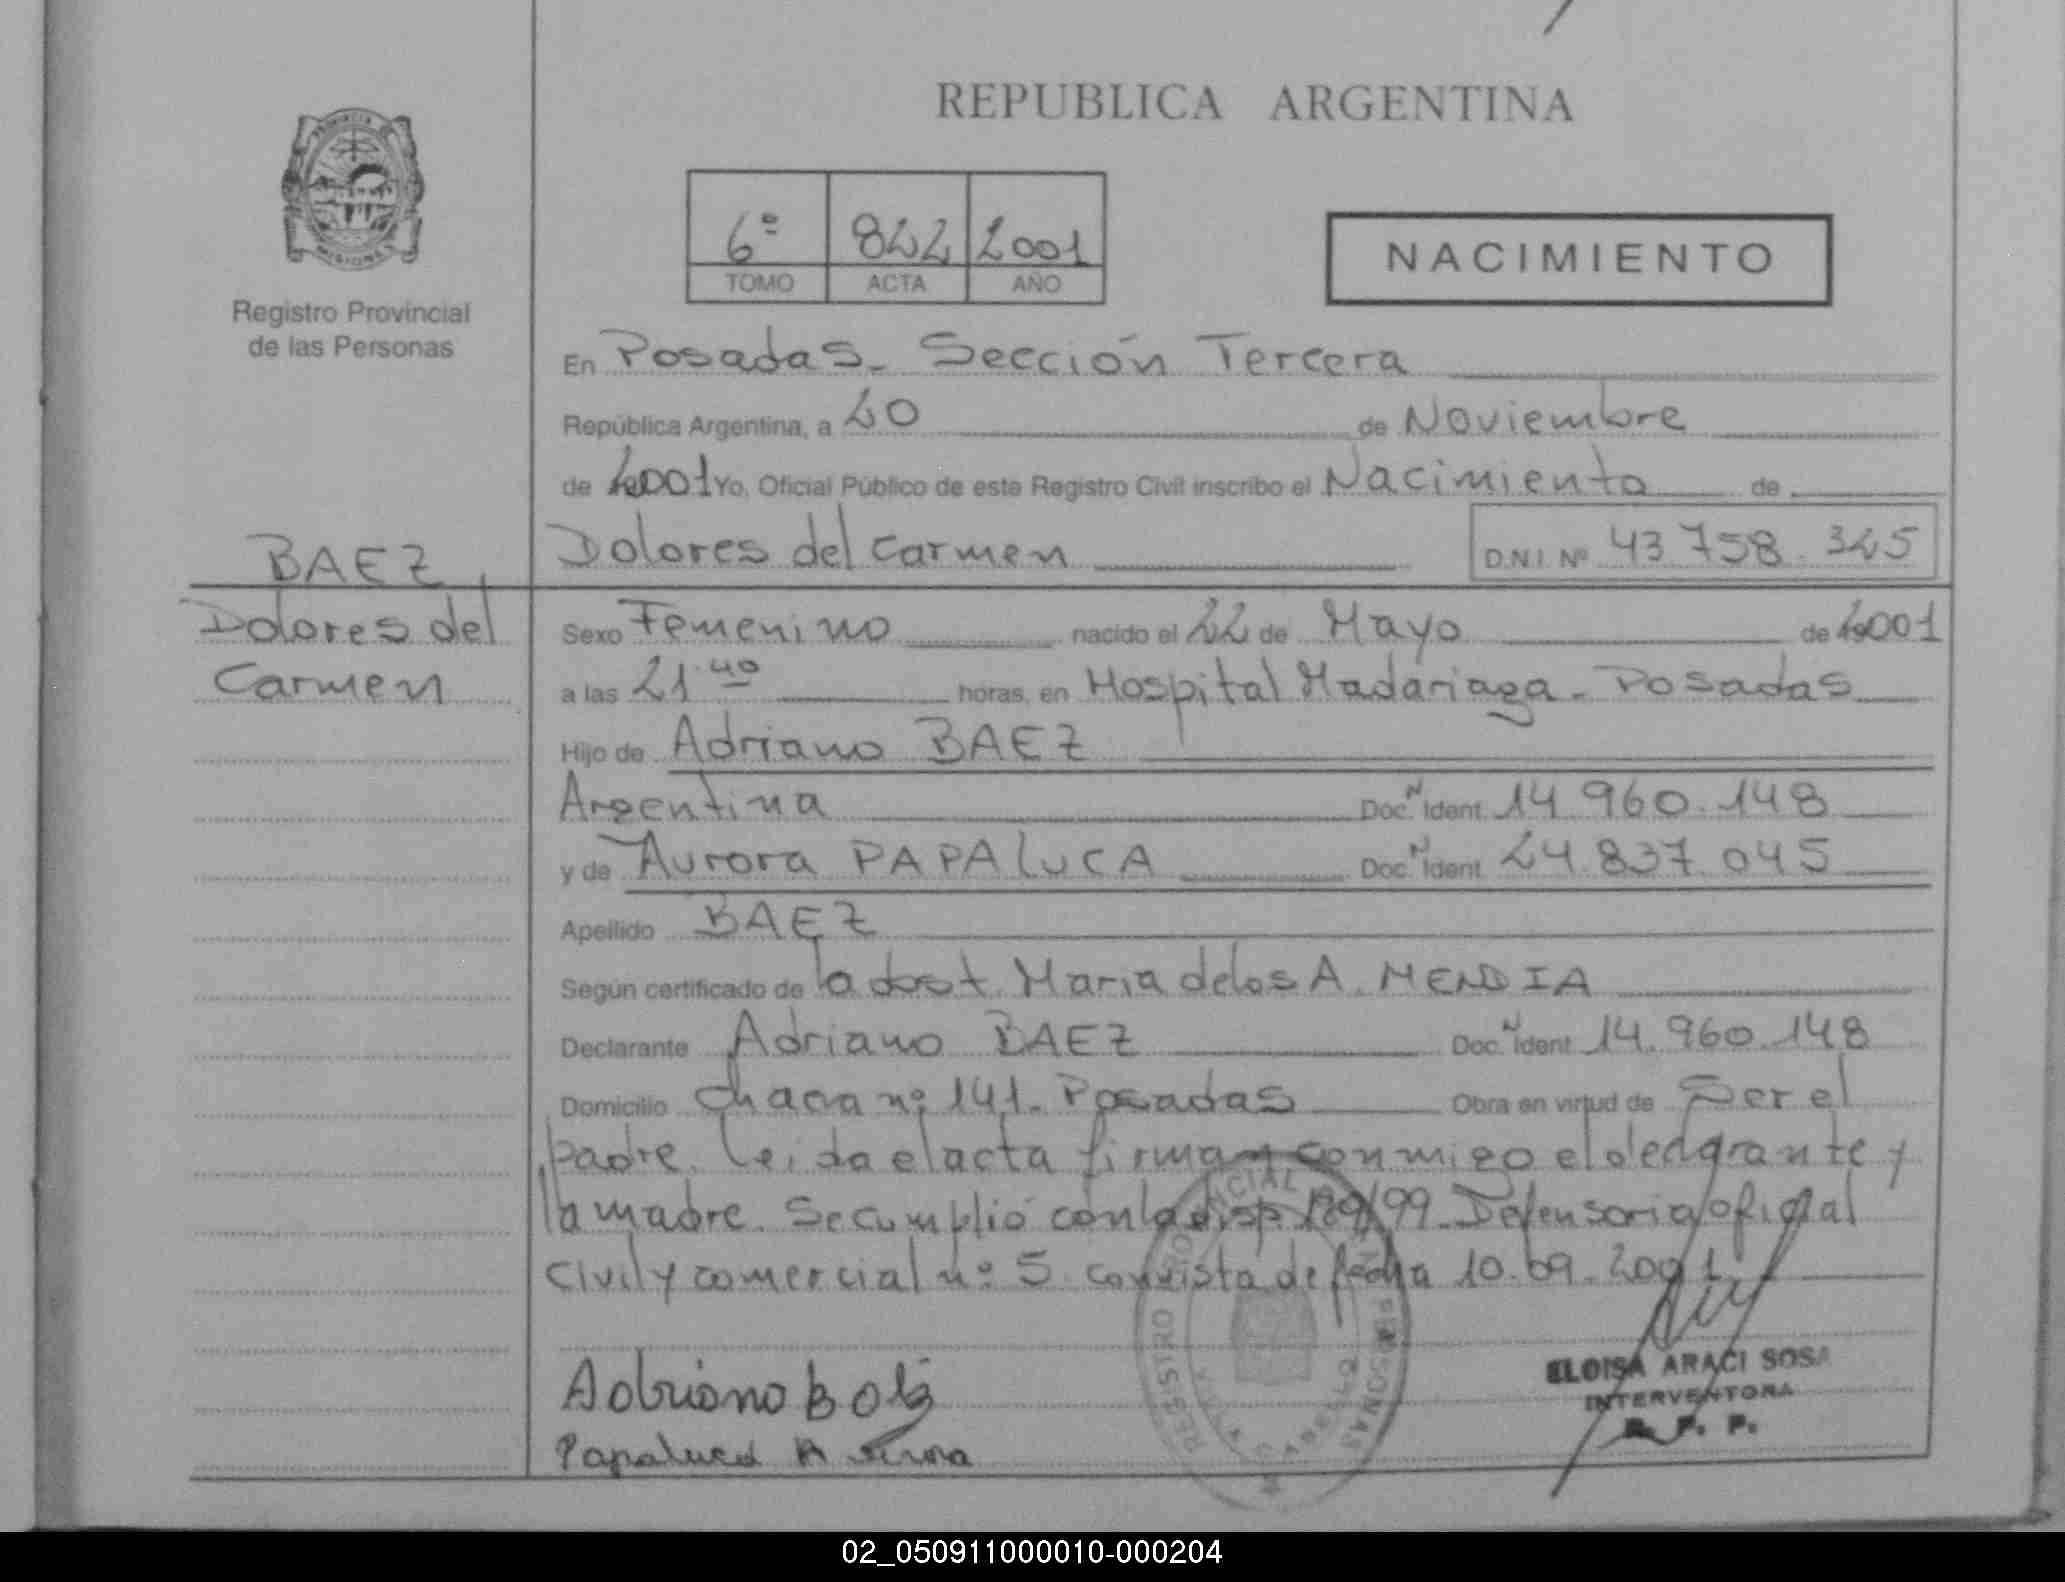 REPUBLICA ARGENTINA
PROVINCIA DE
MISIONES
Registro Provincial
de las Personas
6º 822 2001
TOMO ACTA AÑO
NACIMIENTO
En Posadas - Sección Tercera
República Argentina, a 20 de Noviembre
de 2001 Yo, Oficial Público de este Registro Civil inscribo el Nacimiento de
BAEZ,
Dolores del
Carmen
Dolores del Carmen D.N.I. Nº 43.758.325
Sexo Femenino nacido el 22 de Mayo de 2001
a las 21.40 horas, en Hospital Madariaga - Posadas
Hijo de Adriano BAEZ
Argentina Doc. N Ident. 14.960.148
y de Aurora PAPALUCA Doc. N Ident. 24.837.045
Apellido BAEZ
Según certificado de la obst. Maria de los A. MENDIA
Declarante Adriano BAEZ Doc. N Ident. 14.960.148
Domicilio chacra nº 141. Posadas Obra en virtud de Ser el
padre. Leida el acta firman conmigo el declarante y
la madre. Se cumplió con la disp 189/99. Defensoria oficial
civil y comercial nº 5 con vista de fecha 10.09.2001
Adriano Baez
Papaluca Aurora
REGISTRO PROVINCIAL DE LAS PERSONAS
ELOISA ARACI SOSA
INTERVENTORA
R. P. P.
02_050911000010-000204